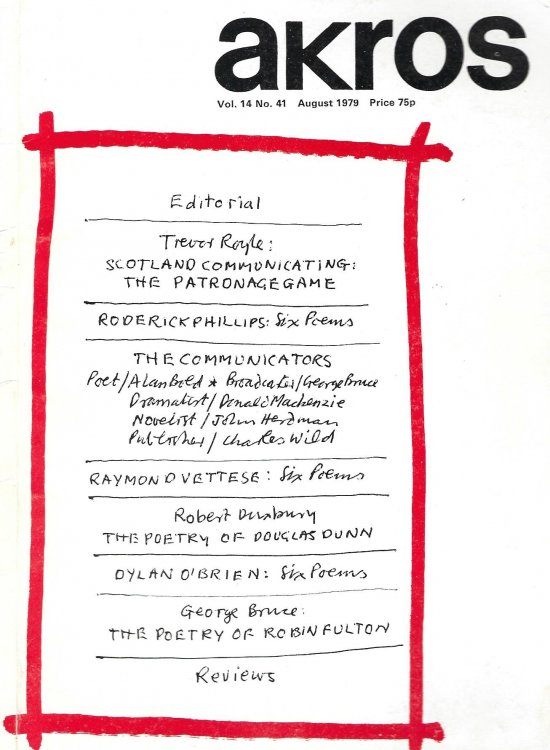 akros
Vol. 14 No. 41 August 1979 Price 75p
Editorial
Trevor Royle:
SCOTLAND COMMUNICATING:
THE PATRONAGE GAME
RODERICK PHILLIPS: Six Poems
THE COMMUNICATORS
Poet/Alan Bold ★ Broadcaster/George Bruce
Dramatist/Donald Mackenzie
Novelist/John Herdman
Publisher/Charles Wild
RAYMOND VETTESE: Six Poems
Robert Duxbury
THE POETRY OF DOUGLAS DUNN
DYLAN O'BRIEN: Six Poems
George Bruce:
THE POETRY OF ROBIN FULTON
Reviews